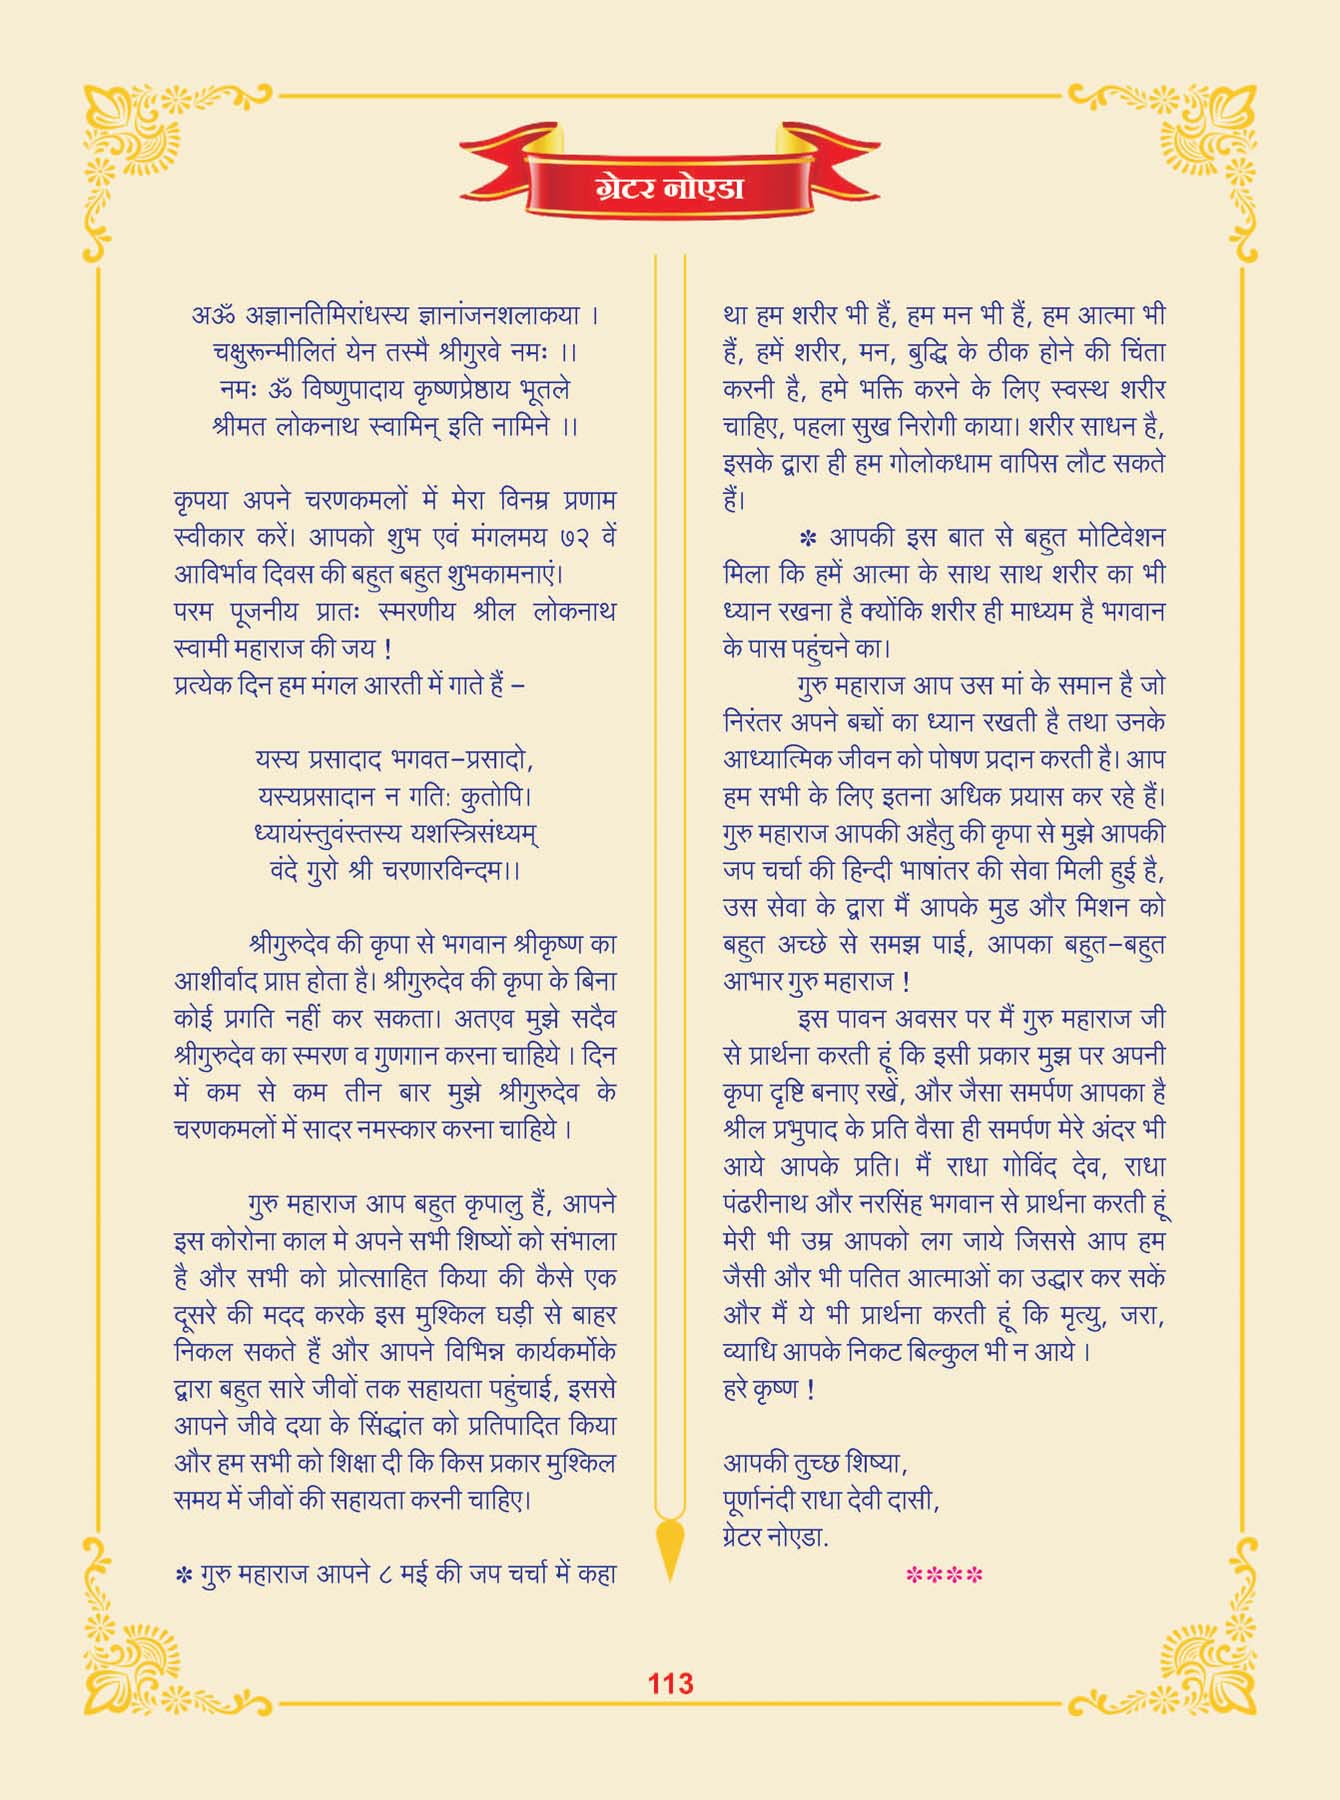 ग्रेटर नोएडा
अॐ अज्ञानतिमिरांधस्य ज्ञानांजनशलाकया ।
चक्षुरून्मीलितं येन तस्मै श्रीगुरवे नमः ।।
नमः ॐ विष्णुपादाय कृष्णप्रेष्ठाय भूतले
श्रीमत लोकनाथ स्वामिन् इति नामिने ।।
कृपया अपने चरणकमलों में मेरा विनम्र प्रणाम
स्वीकार करें। आपको शुभ एवं मंगलमय ७२ वें
आविर्भाव दिवस की बहुत बहुत शुभकामनाएं।
परम पूजनीय प्रातः स्मरणीय श्रील लोकनाथ
स्वामी महाराज की जय !
प्रत्येक दिन हम मंगल आरती में गाते हैं –
यस्य प्रसादाद भगवत–प्रसादो,
यस्यप्रसादान न गतिः कुतोपि।
ध्यायंस्तुवंस्तस्य यशस्त्रिसंध्यम्
वंदे गुरो श्री चरणारविन्दम।।
श्रीगुरुदेव की कृपा से भगवान श्रीकृष्ण का
आशीर्वाद प्राप्त होता है। श्रीगुरुदेव की कृपा के बिना
कोई प्रगति नहीं कर सकता। अतएव मुझे सदैव
श्रीगुरुदेव का स्मरण व गुणगान करना चाहिये । दिन
में कम से कम तीन बार मुझे श्रीगुरुदेव के
चरणकमलों में सादर नमस्कार करना चाहिये ।
गुरु महाराज आप बहुत कृपालु हैं, आपने
इस कोरोना काल मे अपने सभी शिष्यों को संभाला
है और सभी को प्रोत्साहित किया की कैसे एक
दूसरे की मदद करके इस मुश्किल घड़ी से बाहर
निकल सकते हैं और आपने विभिन्न कार्यकर्मोके
द्वारा बहुत सारे जीवों तक सहायता पहुंचाई, इससे
आपने जीवे दया के सिंद्धांत को प्रतिपादित किया
और हम सभी को शिक्षा दी कि किस प्रकार मुश्किल
समय में जीवों की सहायता करनी चाहिए।
✽ गुरु महाराज आपने ८ मई की जप चर्चा में कहा
था हम शरीर भी हैं, हम मन भी हैं, हम आत्मा भी
हैं, हमें शरीर, मन, बुद्धि के ठीक होने की चिंता
करनी है, हमे भक्ति करने के लिए स्वस्थ शरीर
चाहिए, पहला सुख निरोगी काया। शरीर साधन है,
इसके द्वारा ही हम गोलोकधाम वापिस लौट सकते
हैं।
✽ आपकी इस बात से बहुत मोटिवेशन
मिला कि हमें आत्मा के साथ साथ शरीर का भी
ध्यान रखना है क्योंकि शरीर ही माध्यम है भगवान
के पास पहुंचने का।
गुरु महाराज आप उस मां के समान है जो
निरंतर अपने बच्चों का ध्यान रखती है तथा उनके
आध्यात्मिक जीवन को पोषण प्रदान करती है। आप
हम सभी के लिए इतना अधिक प्रयास कर रहे हैं।
गुरु महाराज आपकी अहैतु की कृपा से मुझे आपकी
जप चर्चा की हिन्दी भाषांतर की सेवा मिली हुई है,
उस सेवा के द्वारा मैं आपके मुड और मिशन को
बहुत अच्छे से समझ पाई, आपका बहुत–बहुत
आभार गुरु महाराज !
इस पावन अवसर पर मैं गुरु महाराज जी
से प्रार्थना करती हूं कि इसी प्रकार मुझ पर अपनी
कृपा दृष्टि बनाए रखें, और जैसा समर्पण आपका है
श्रील प्रभुपाद के प्रति वैसा ही समर्पण मेरे अंदर भी
आये आपके प्रति। मैं राधा गोविंद देव, राधा
पंढरीनाथ और नरसिंह भगवान से प्रार्थना करती हूं
मेरी भी उम्र आपको लग जाये जिससे आप हम
जैसी और भी पतित आत्माओं का उद्धार कर सकें
और मैं ये भी प्रार्थना करती हूं कि मृत्यु, जरा,
व्याधि आपके निकट बिल्कुल भी न आये ।
हरे कृष्ण !
आपकी तुच्छ शिष्या,
पूर्णानंदी राधा देवी दासी,
ग्रेटर नोएडा.
✽✽✽✽
113